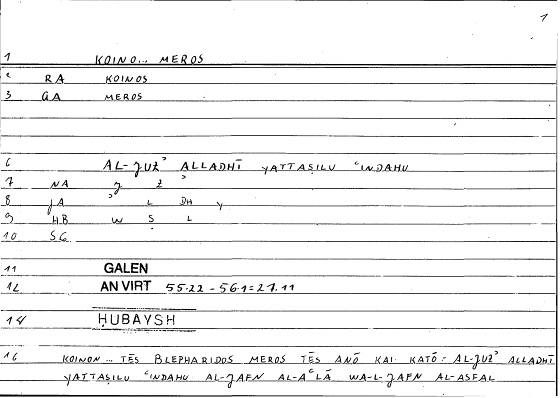 1
1 KOINO... MEROS
2 RA KOINOS
3 GA MEROS
6 AL-JUZʾ ALLADHĪ YATTAṢILU ʿINDAHU
7 NA J Z ʾ
8 JA ʾ L DH Y
9 HB W Ṣ L
10 SG
11 GALEN
12 AN VIRT 55.22 - 56.1 = 27.11
14 ḤUBAYSH
16 KOINON... TĒS BLEPHARIDOS MEROS TĒS ANŌ KAI KATŌ = AL-JUZʾ ALLADHĪ
YATTAṢILU ʿINDAHU AL-JAFN AL-AʿLĀ WA-L-JAFN AL-ASFAL